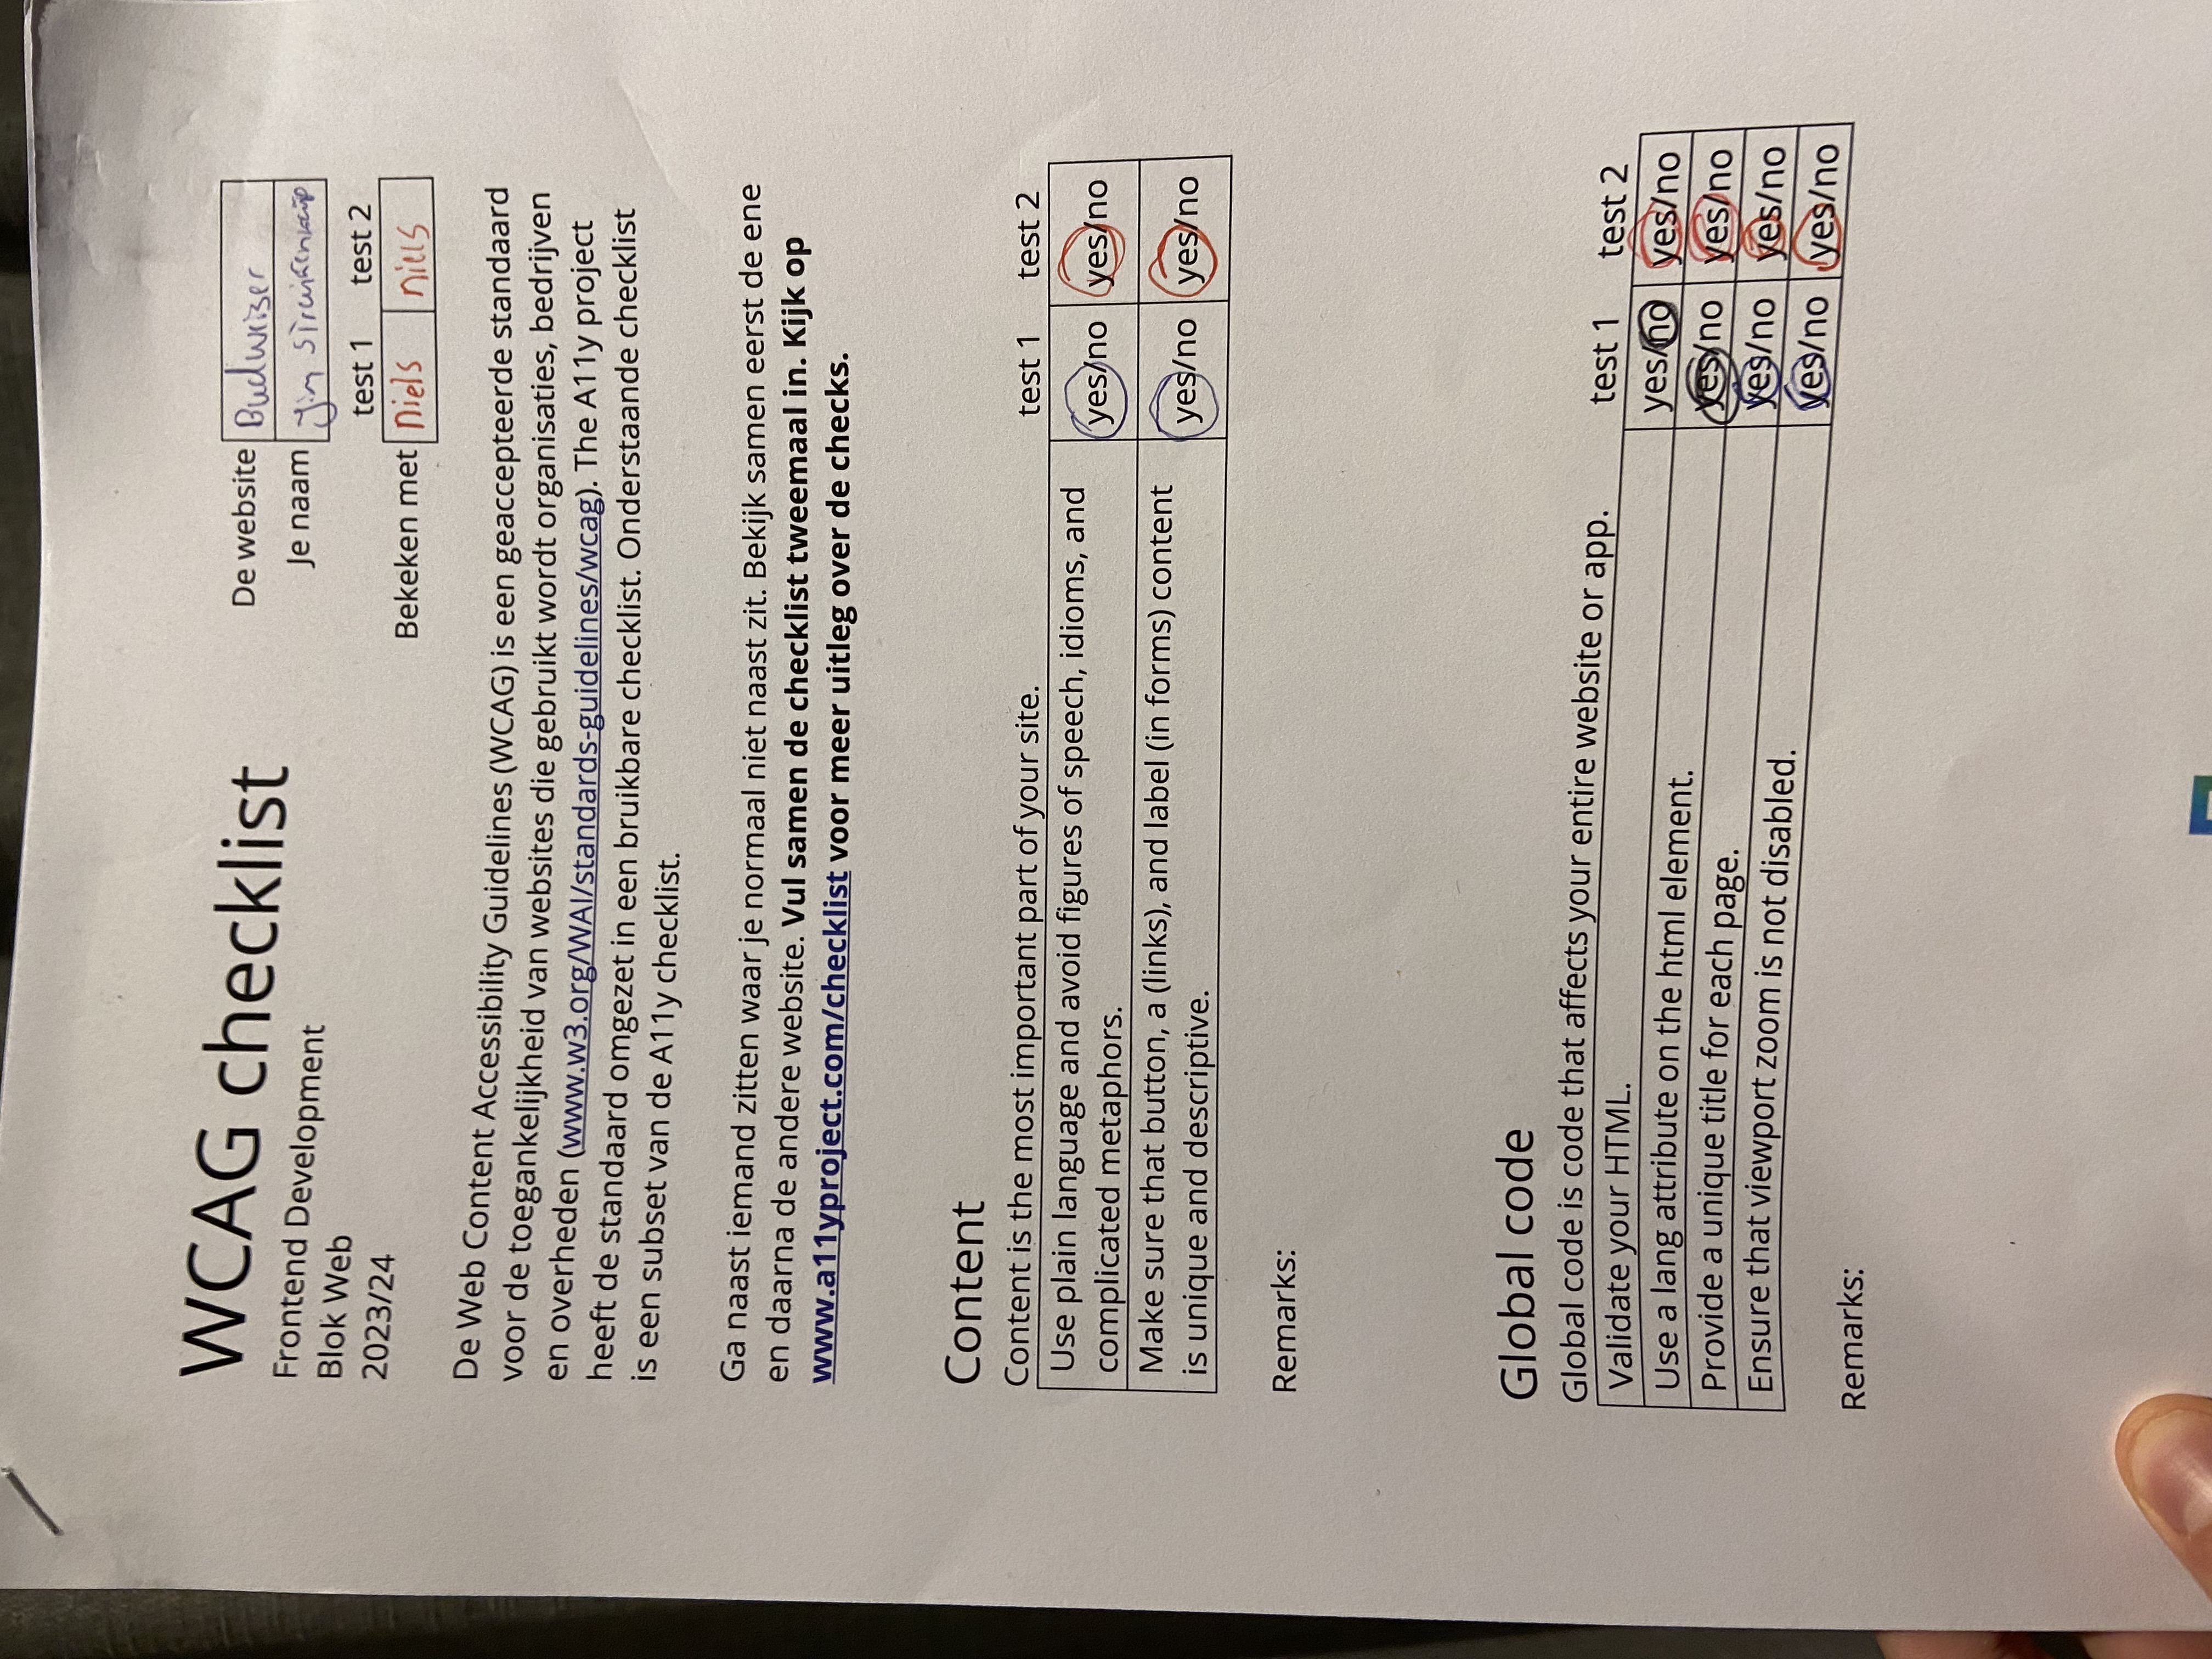 WCAG checklist
Frontend Development
Blok Web
2023/24
De website Budweiser
Je naam Jim
test 1 test 2
Bekeken met Niels niels
De Web Content Accessibility Guidelines (WCAG) is een geaccepteerde standaard
voor de toegankelijkheid van websites die gebruikt wordt organisaties, bedrijven
en overheden (www.w3.org/WAI/standards-guidelines/wcag). The A11y project
heeft de standaard omgezet in een bruikbare checklist. Onderstaande checklist
is een subset van de A11y checklist.
Ga naast iemand zitten waar je normaal niet naast zit. Bekijk samen eerst de ene
en daarna de andere website. Vul samen de checklist tweemaal in. Kijk op
www.a11yproject.com/checklist voor meer uitleg over de checks.
Content
Content is the most important part of your site. test 1 test 2
Use plain language and avoid figures of speech, idioms, and
complicated metaphors. yes/no yes/no
Make sure that button, a (links), and label (in forms) content
is unique and descriptive. yes/no yes/no
Remarks:
Global code
Global code is code that affects your entire website or app. test 1 test 2
Validate your HTML. yes/no yes/no
Use a lang attribute on the html element. yes/no yes/no
Provide a unique title for each page. yes/no yes/no
Ensure that viewport zoom is not disabled. yes/no yes/no
Remarks: